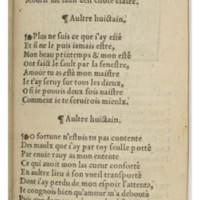 ¶Aultre huictain.
Plus ne suis ce que i'ay esté
Et si ne le puis iamais estre,
Mon beau printemps & mon esté
Ont faict le sault par la fenestre,
Amour tu as esté mon maistre
Ie t'ay seruy sur tous les dieux,
O si ie pouois deux fois naistre
Comment ie te seruirois mieulx.
¶Aultre huictain.
O fortune n'estois tu pas contente
Des maulx que i'ay par toy souffle porté
Par enuie tuay as mon entente
Ce qui auoit mon las cueur conforté
En autre lieu à son vueil transporté
Dont i'ay perdu de mon espoir l'attente,
Ie congnois bien qu'amour m'a debouté